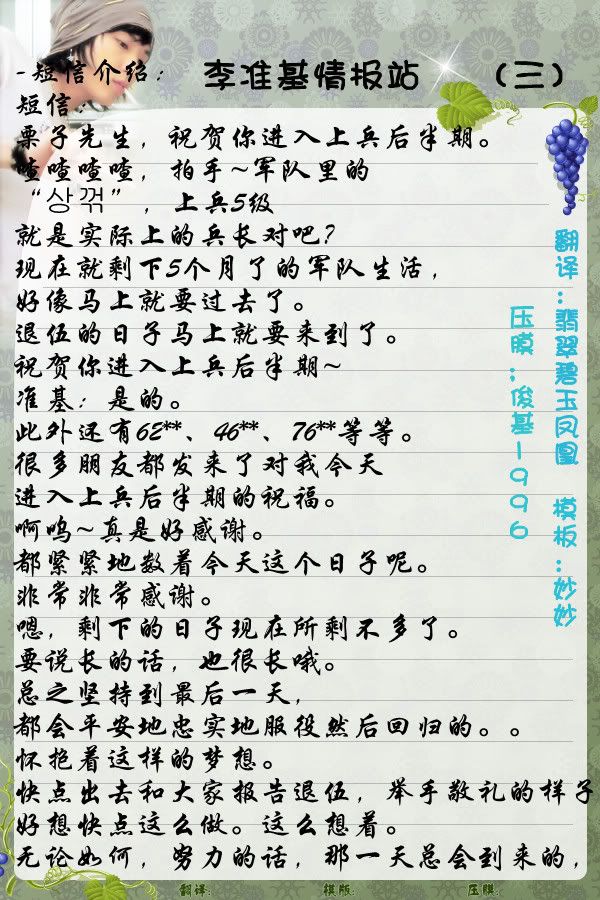 -短信介绍：
李准基情报站 （三）
短信：
栗子先生，祝贺你进入上兵后半期。
喳喳喳喳，拍手~军队里的
“상꺾”，上兵5级
就是实际上的兵长对吧？
现在就剩下5个月了的军队生活，
好像马上就要过去了。
退伍的日子马上就要来到了。
祝贺你进入上兵后半期~
准基：是的。
此外还有62**、46**、76**等等。
很多朋友都发来了对我今天
进入上兵后半期的祝福。
啊呜~真是好感谢。
都紧紧地数着今天这个日子呢。
非常非常感谢。
嗯，剩下的日子现在所剩不多了。
要说长的话，也很长哦。
总之坚持到最后一天，
都会平安地忠实地服役然后回归的。。
怀抱着这样的梦想。
快点出去和大家报告退伍，举手敬礼的样子
好想快点这么做。这么想着。
无论如何，努力的话，那一天总会到来的，
翻译：翡翠碧玉凤凰 模板：妙妙
压膜：俊基1996
翻译： 模版： 压膜：